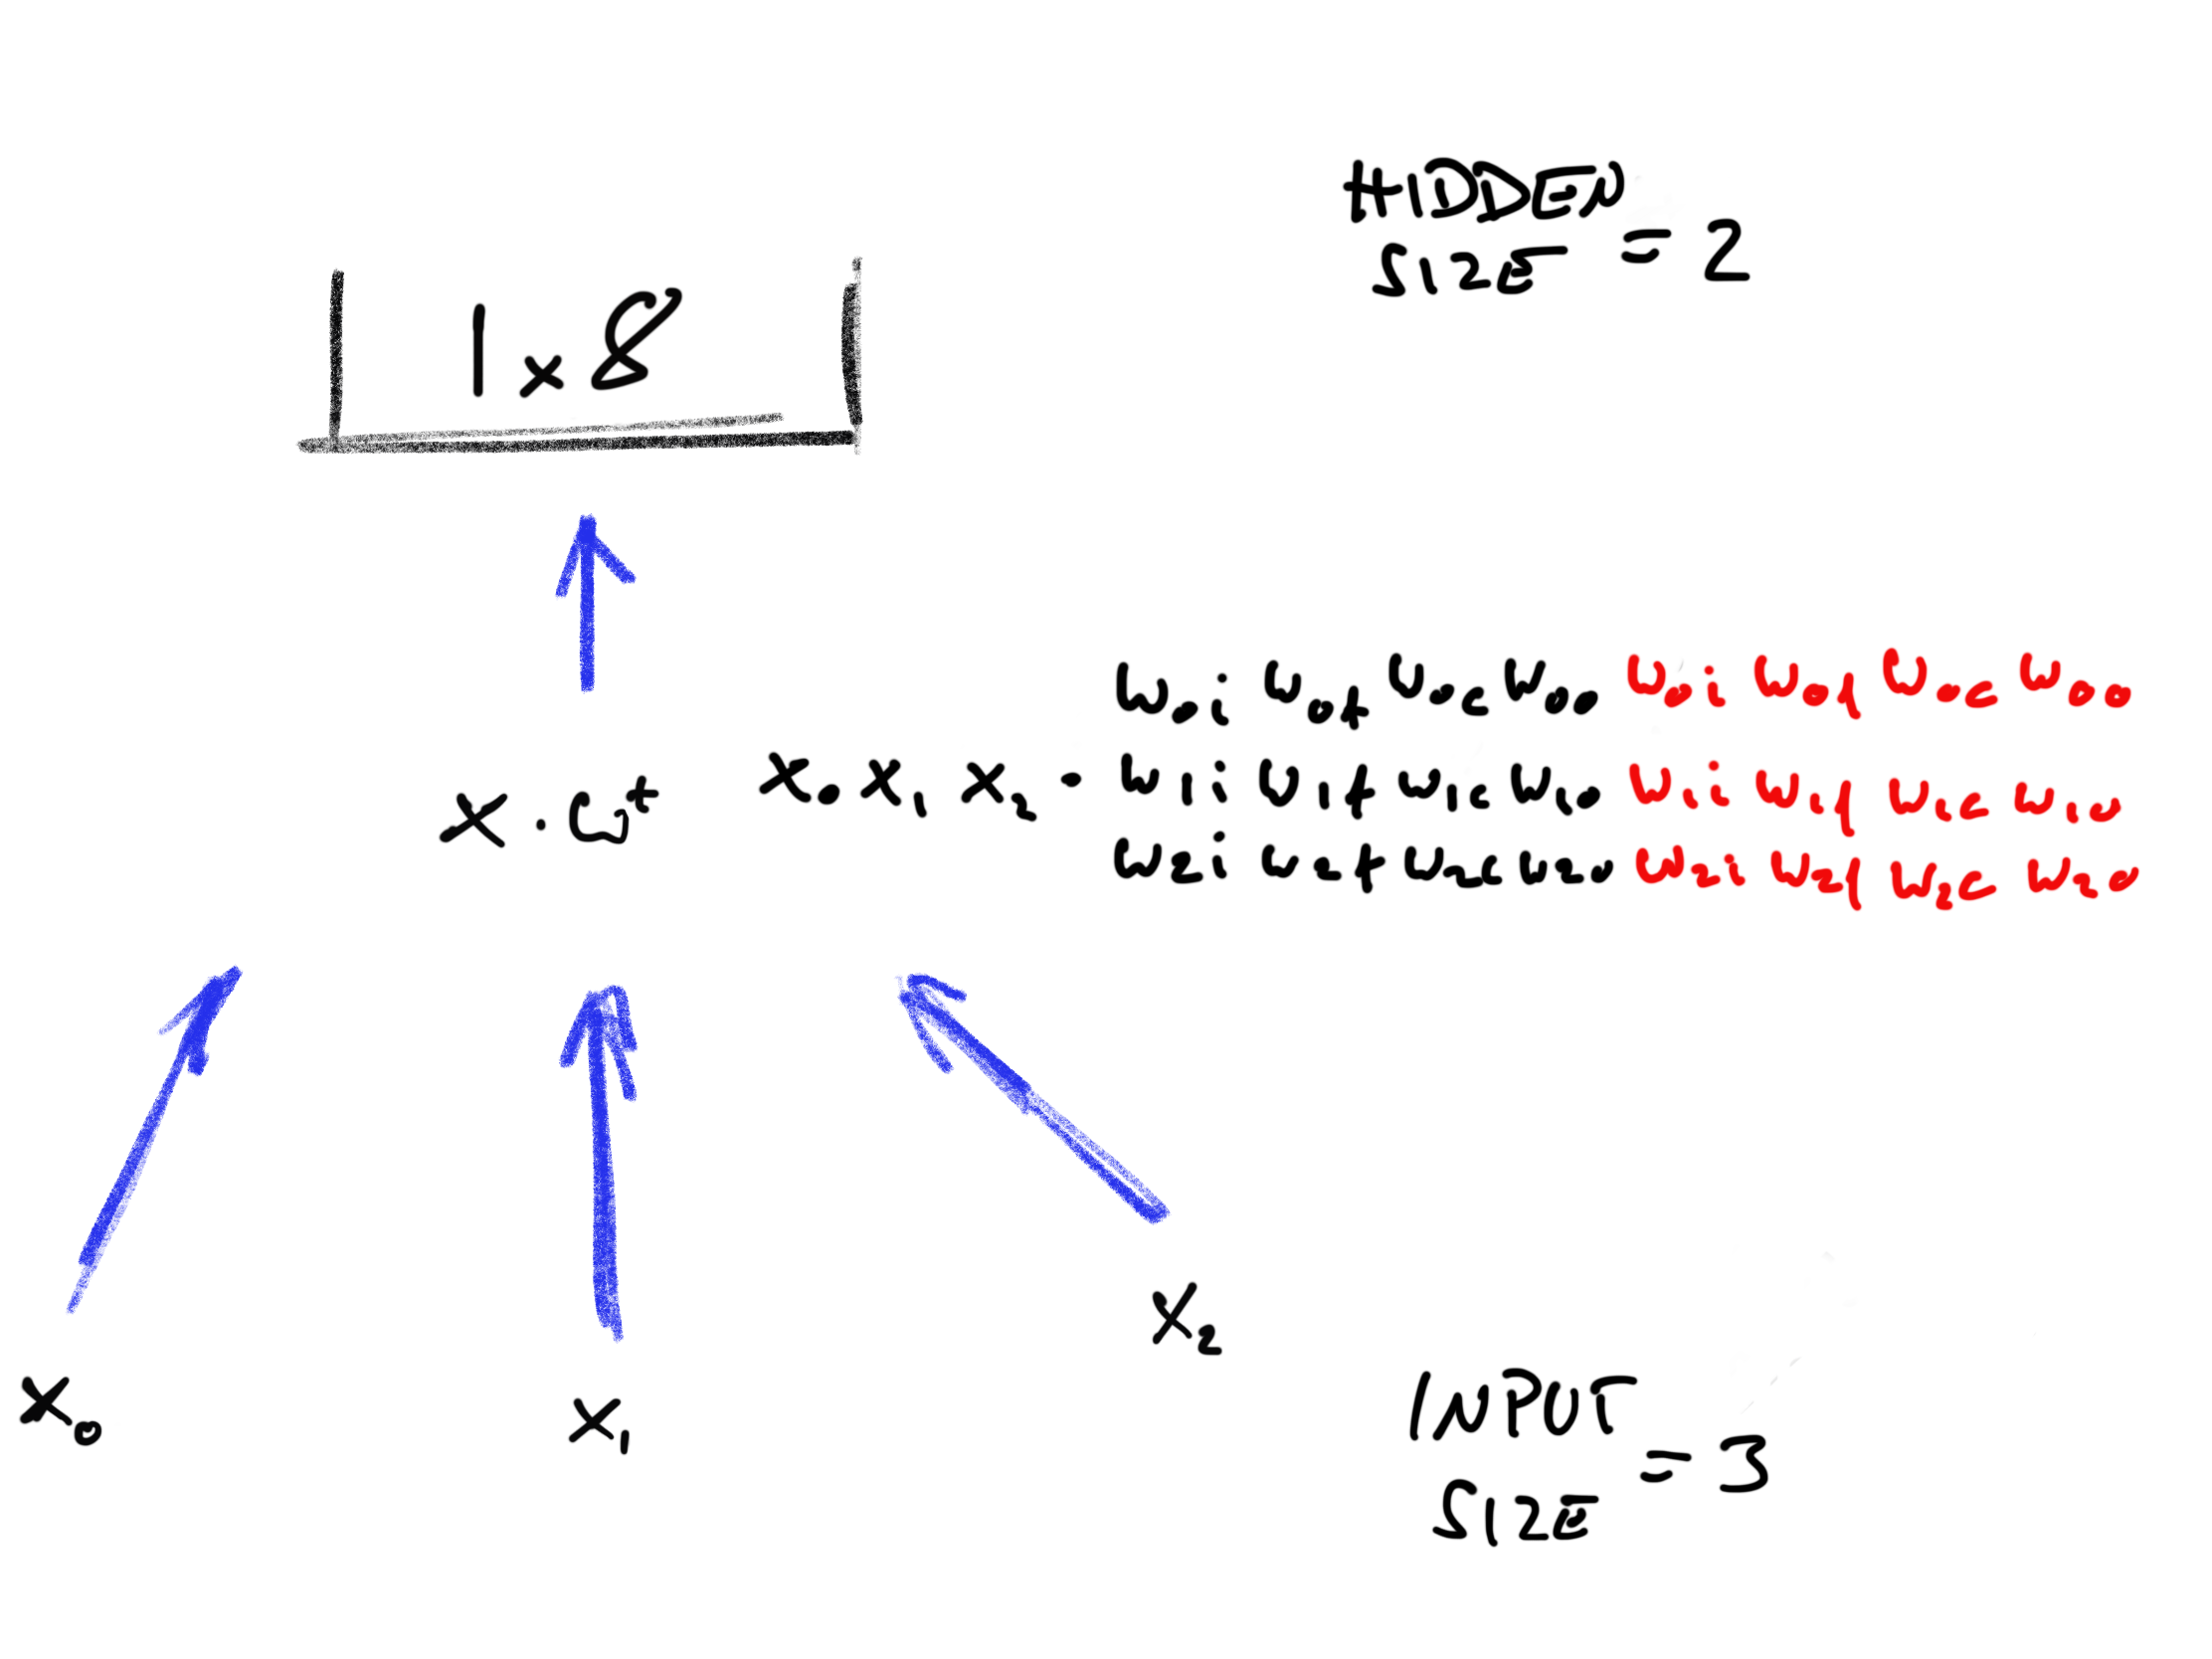 HIDDEN
SIZE = 2
1x8
w0i w0f w0c w0o w0i w0f w0c w0o
x · wt x0 x1 x2 · w1i w1f w1c w1o w1i w1f w1c w1o
w2i w2f w2c w2o w2i w2f w2c w2o
x2
x0
x1
INPUT
SIZE = 3